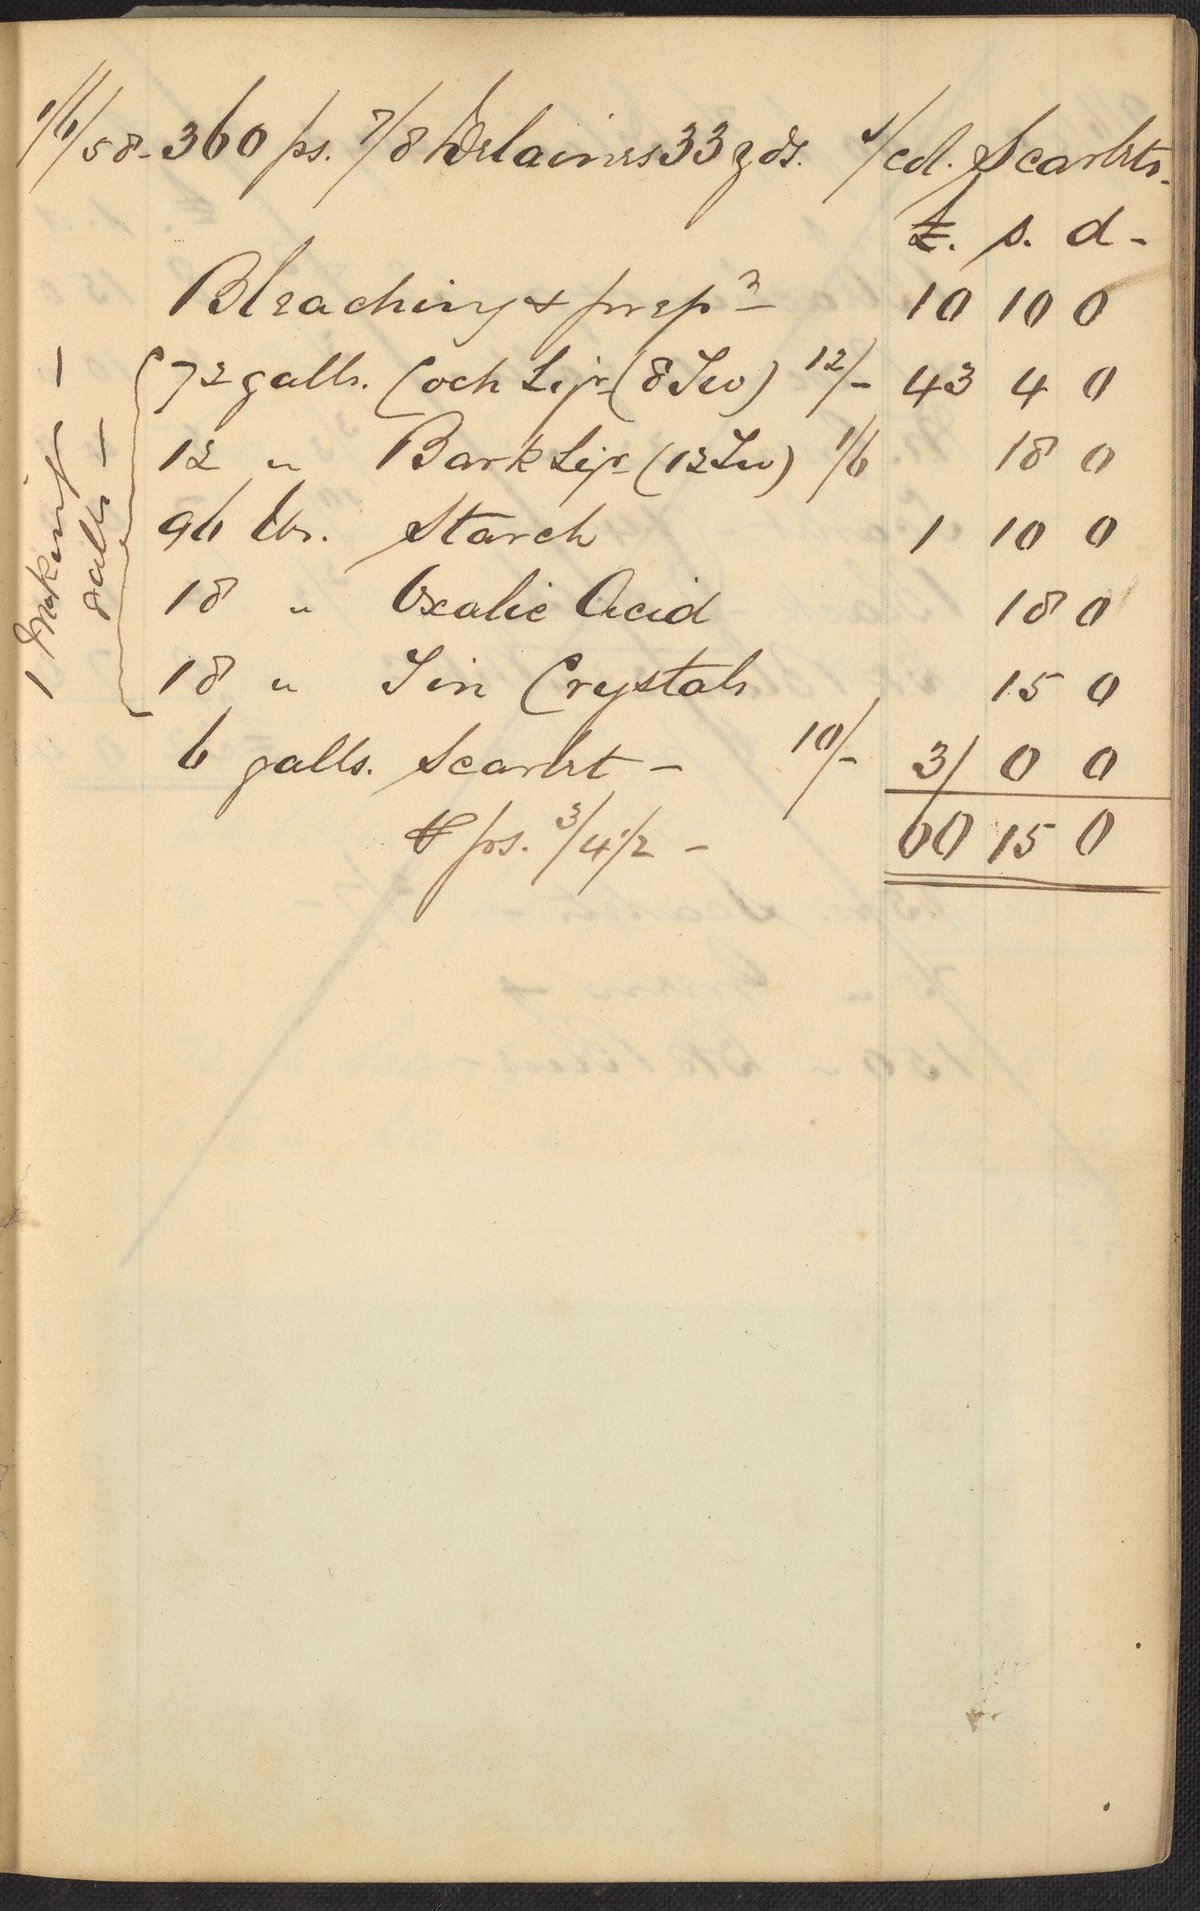 1/6/58 - 360 ps. 7/8 Delaines 33 yds. 1/col. Scarlets -
£. s. d -
Bleaching & prepn 10 10 0
72 galls. Coch Liqr (8 Tw) 12/- 43 4 0
12 " Bark Liqr (12 Tw) 1/6 18 0
96 lbs. Starch 1 10 0
18 " Oxalic Acid 18 0
18 " Tin Crystals 15 0
6 galls. Scarlet - 10/- 3/ 0 0
⅌ ps. 3/4½ - 60 15 0
1 Making -
galls -